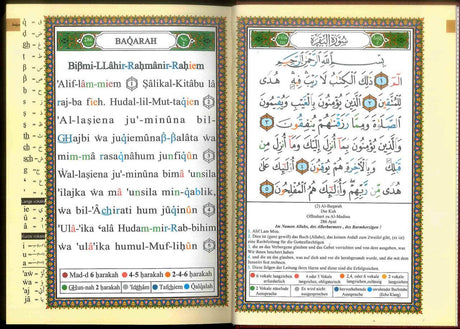 286
BAQARAH
Bißmi-LLâhir-Raḥmânir-Raḥiem
'Alif-lâm-miem ① Ṣâlikal-Kitâbu lâ
raj-ba fieh. Hudal-lil-Mut-taqien ②
'Al-laṣiena ju'-minûna bil-
GHajbi wa juqiemûnaß-ßalâta wa
mim-mâ rasaqnâhum junfiqûn ③
Wal-laṣiena ju'-minûna bimâ 'unsila
'ilajka wa mâ 'unsila min-qablik,
wa bil-'Âchirati hum jûqinûn ④
'Ulâ-'ika 'alâ Hudam-mir-Rab-bihim
wa 'ulâ'ika humul-Muf-liḥûn ⑤
Mad-d 6 ḥarakah 4-5 ḥarakah 2-4-6 ḥarakah
GHun-nah 2 ḥarakah 'Idghâm Tafchiem Qalqalah
سُورَةُ الْبَقَرَةِ
بِسْمِ اللَّهِ الرَّحْمَٰنِ الرَّحِيمِ
الٓمٓ ١ ذَٰلِكَ الْكِتَٰبُ لَا رَيْبَ فِيهِ هُدًى
لِّلْمُتَّقِينَ ٢ الَّذِينَ يُؤْمِنُونَ بِالْغَيْبِ وَيُقِيمُونَ
الصَّلَوٰةَ وَمِمَّا رَزَقْنَٰهُمْ يُنفِقُونَ ٣ وَالَّذِينَ
يُؤْمِنُونَ بِمَآ أُنزِلَ إِلَيْكَ وَمَآ أُنزِلَ مِن
قَبْلِكَ وَبِالْءَاخِرَةِ هُمْ يُوقِنُونَ ٤ أُو۟لَٰٓئِكَ عَلَىٰ
هُدًى مِّن رَّبِّهِمْ وَأُو۟لَٰٓئِكَ هُمُ الْمُفْلِحُونَ ٥
(2) Al-Baqarah
Die Kuh
Offenbart zu Al-Madina
286 Ayat
Im Namen Allahs, des Allerbarmers, des Barmherzigen !
1. Alif Lam Mim.
2. Dies ist (ganz gewiß) das Buch (Allahs), das keinen Anlaß zum Zweifel gibt, (es ist) eine Rechtleitung für die Gottesfürchtigen
3. die an das Verborgene glauben und das Gebet verrichten und von dem ausgeben, was Wir ihnen beschert haben
4. und die an das glauben, was auf dich und vor dir herabgesandt wurde, und die mit dem Jenseits fest rechnen.
5. Diese folgen der Leitung ihres Herrn und diese sind die Erfolgreichen.